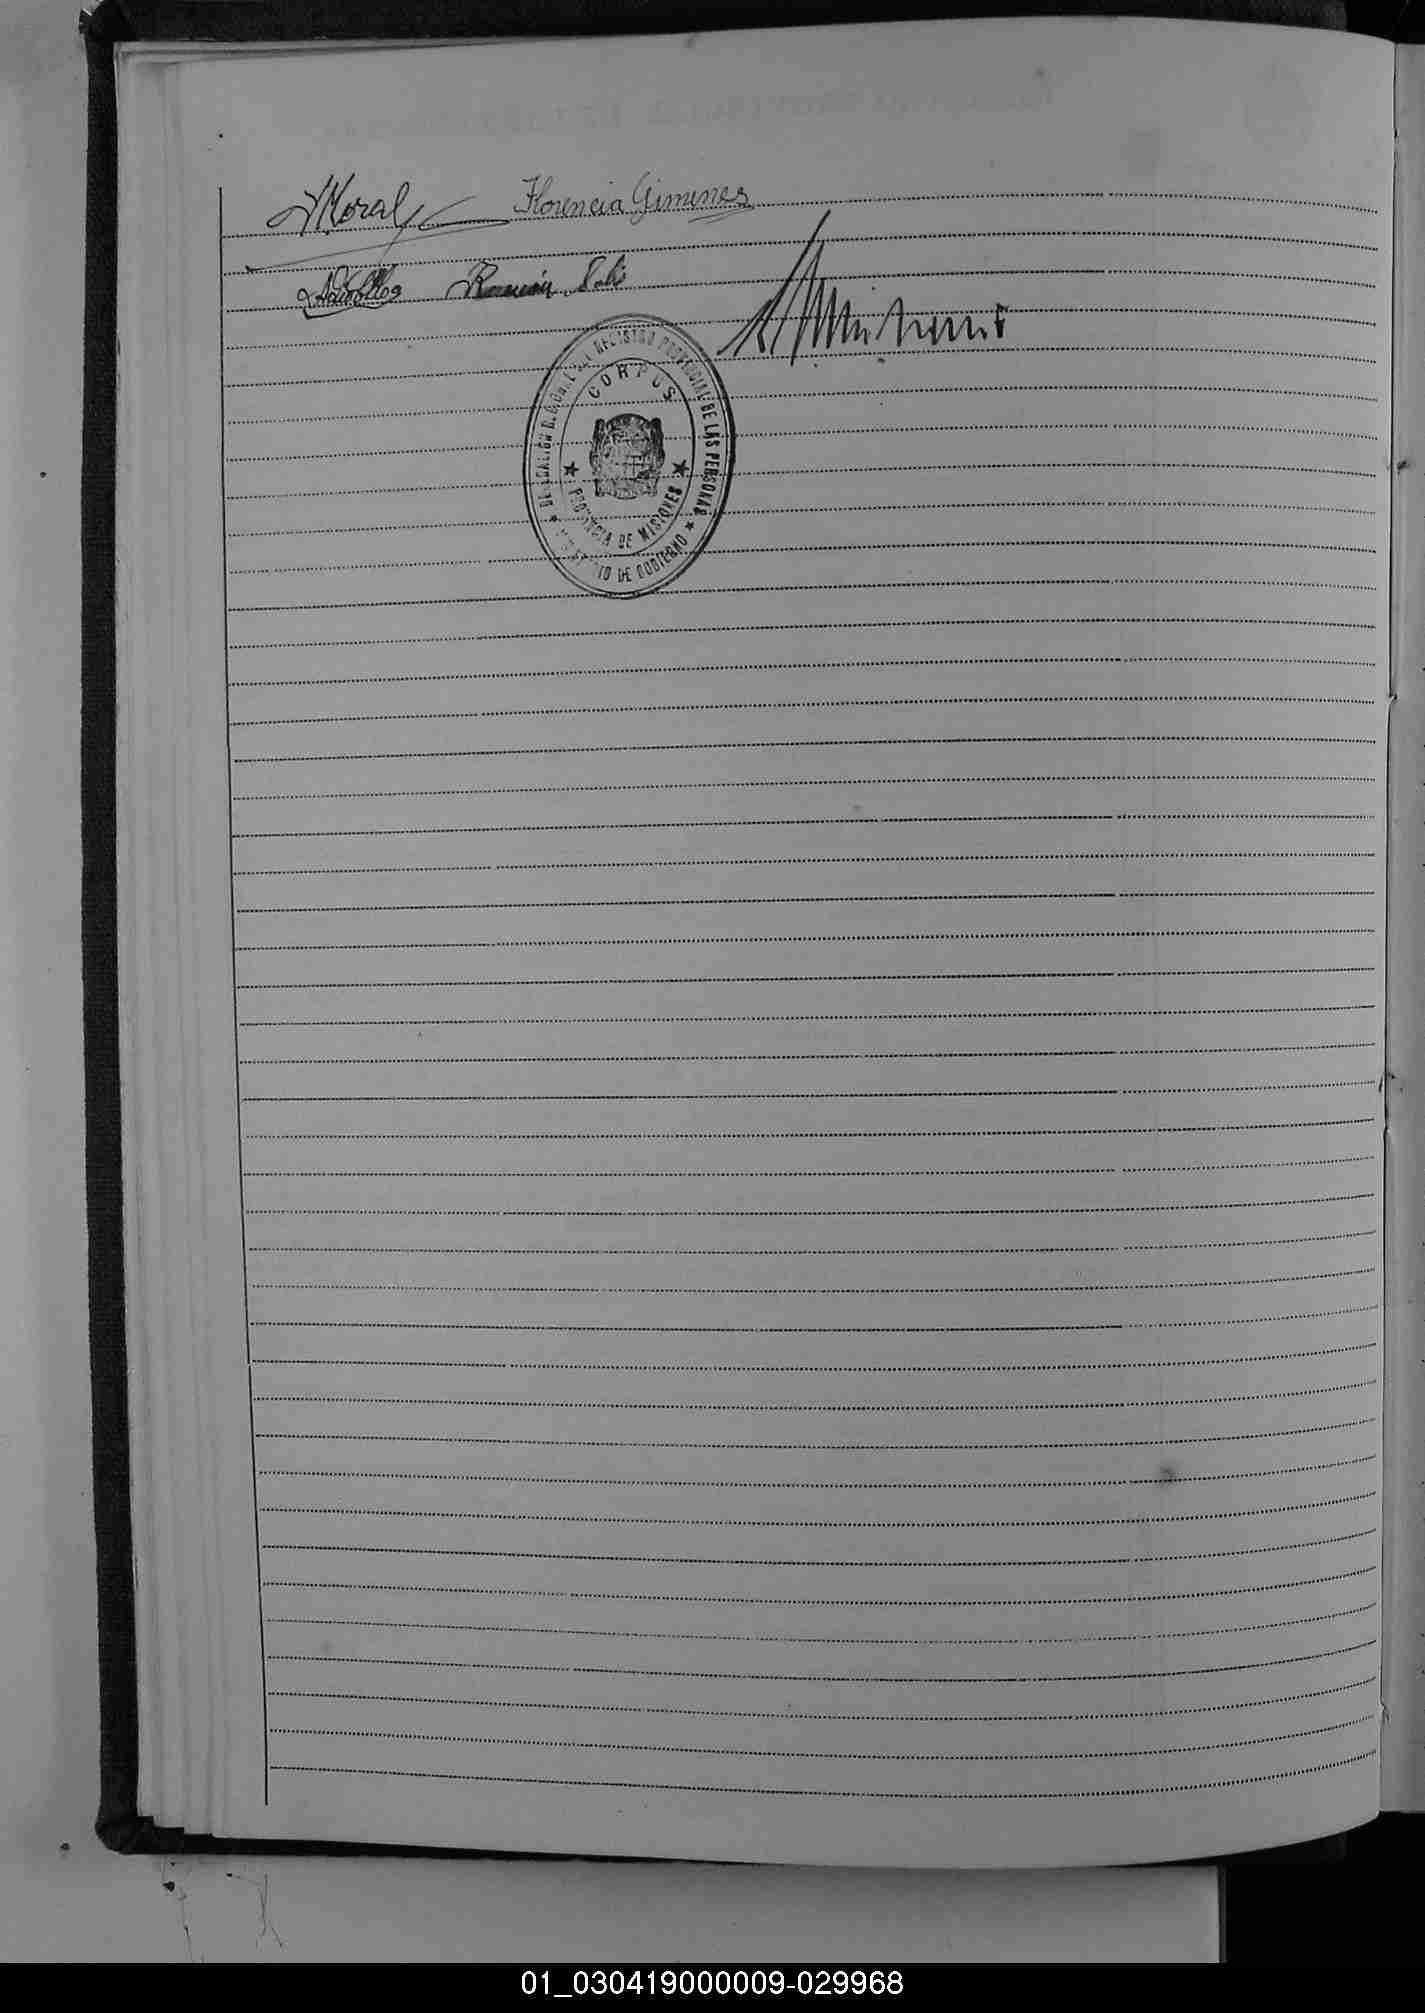 Moral Florencia Gimenes
Ramón
DELEGACIÓN REGIONAL DEL REGISTRO PROVINCIAL DE LAS PERSONAS
CORPUS
PROVINCIA DE MISIONES
MINISTERIO DE GOBIERNO
01_030419000009-029968